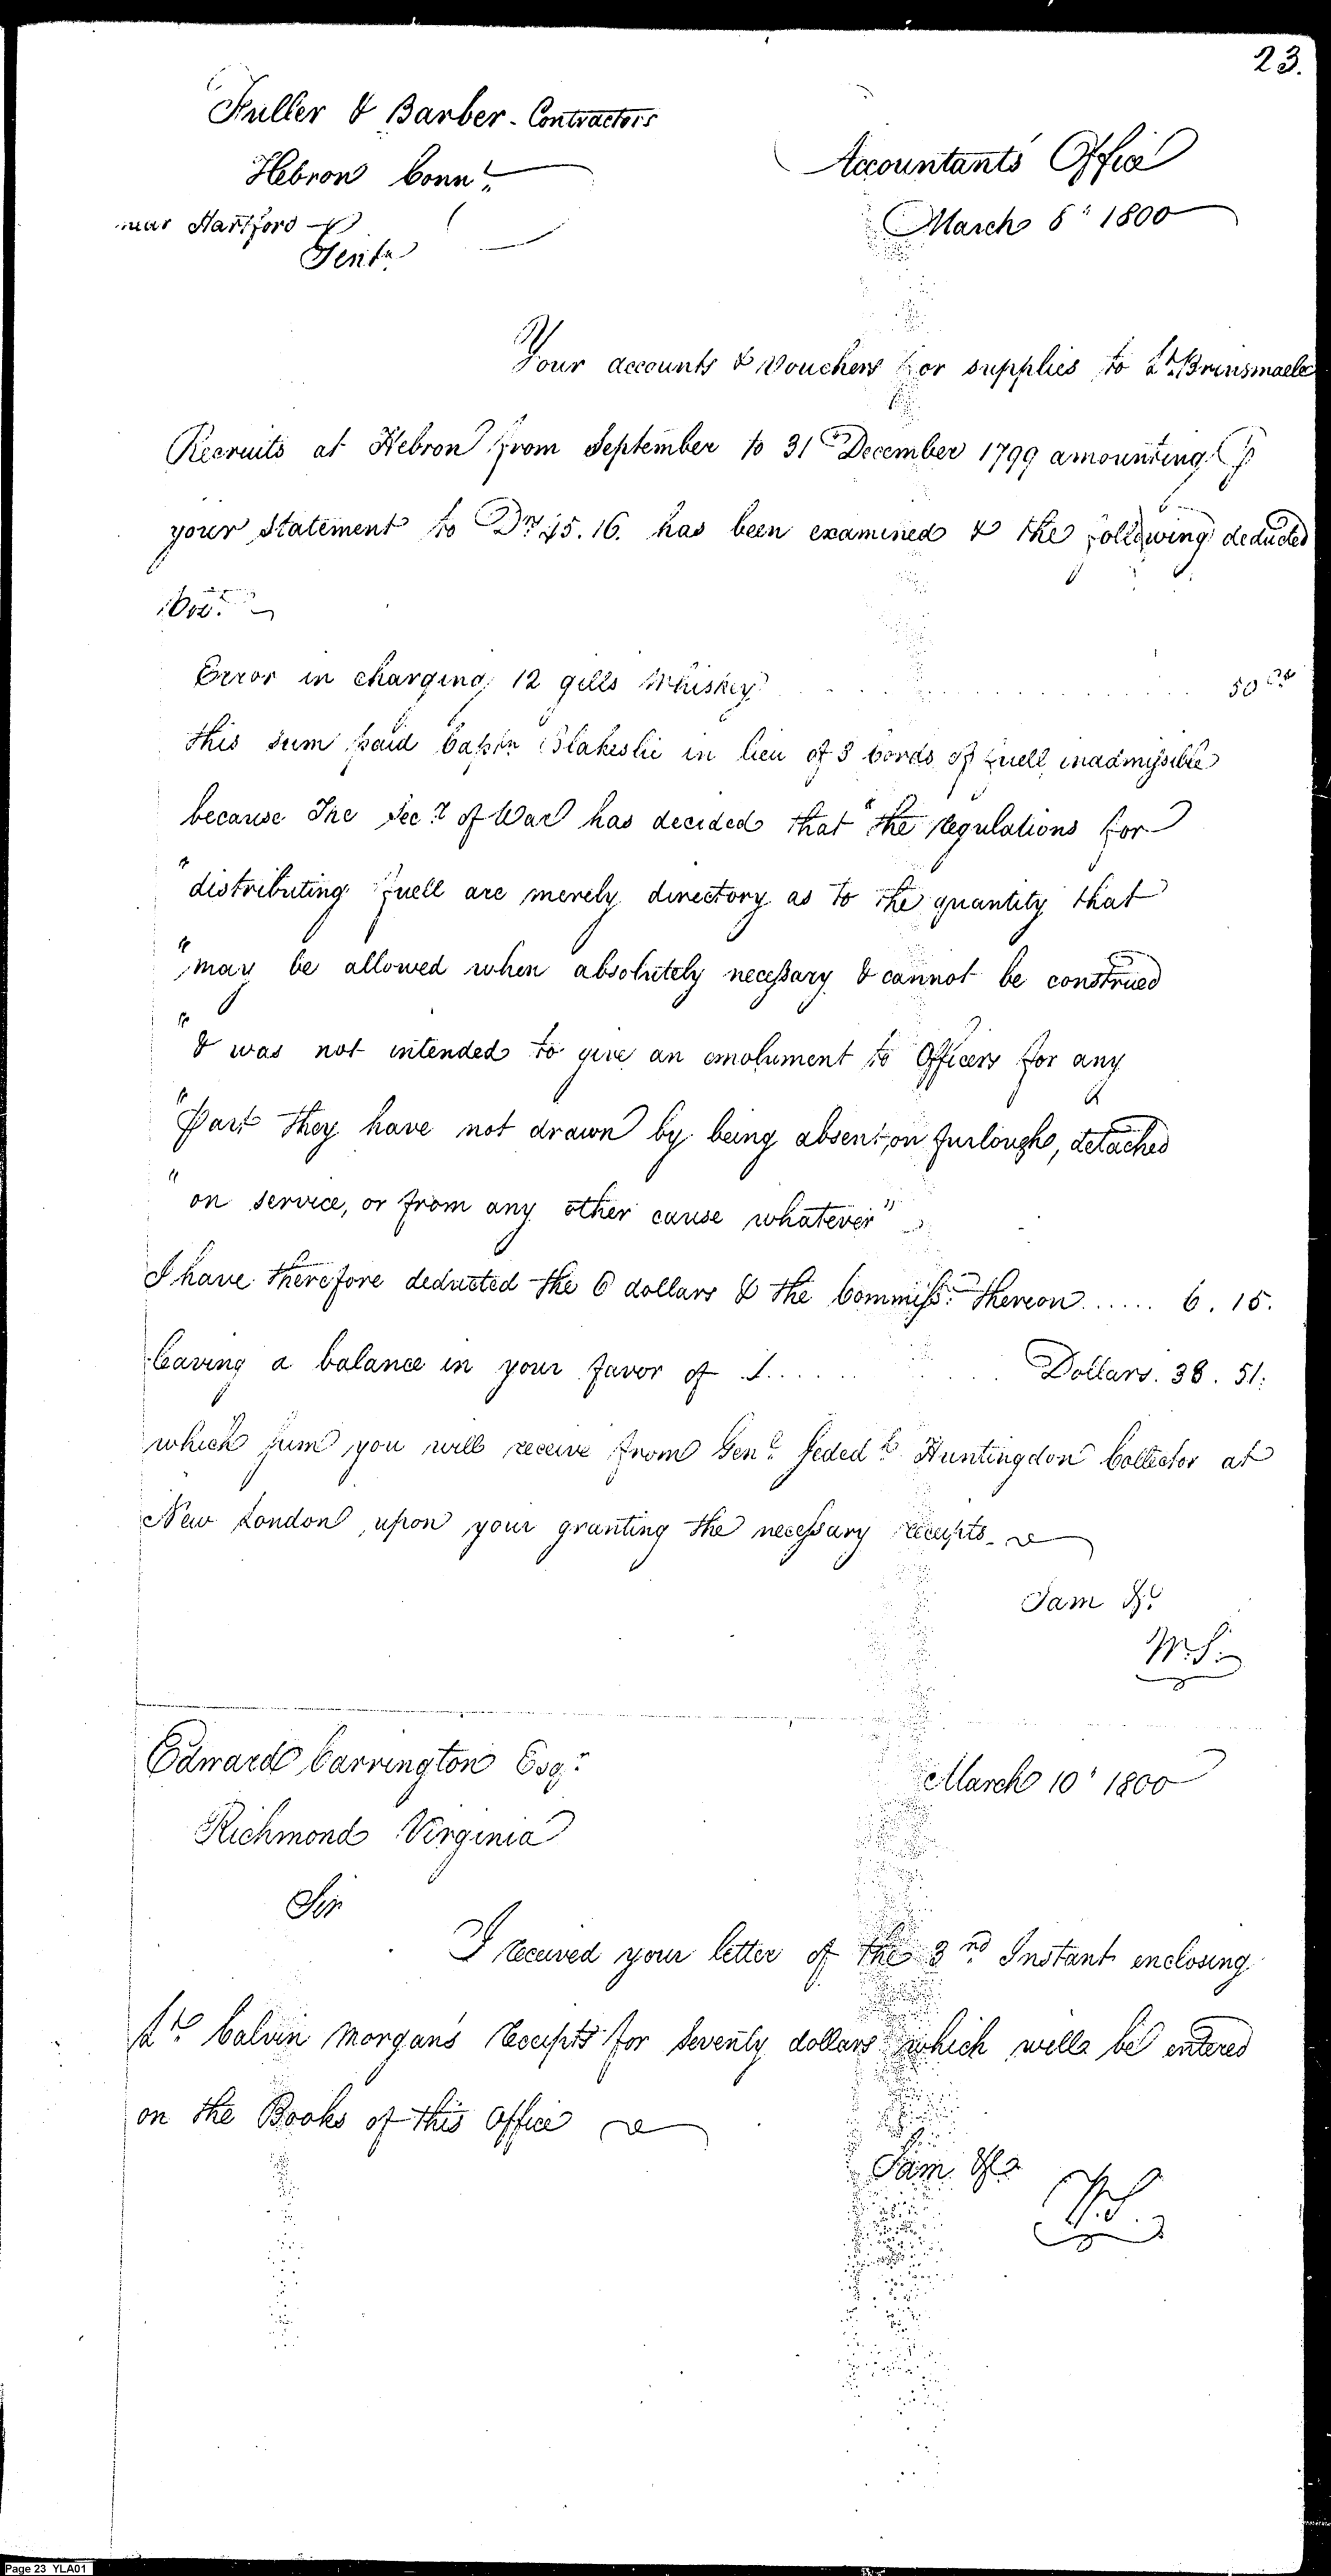 23.
Fuller & Barber - Contractors
Hebron Conn.t
near Hartford
Gent.n
Accountants Office
March 8th 1800
Your accounts & Vouchers for supplies to Lt. Brinsmade
Recruits at Hebron from September to 31 December 1799 amounting p
your Statement to Drs 45.16. has been examined & the following deducted
Viz.
Error in charging 12 gills Whiskey . . . . . . . . . . 50 Cts
this sum paid Captn Blakeslie in lieu of 3 Cords of fuell inadmissible
because The Secy of War has decided that "the regulations for
"distributing fuell are merely directory as to the quantity that
"may be allowed when absolutely necessary & cannot be construed
"& was not intended to give an emolument to Officers for any
"Part they have not drawn by being absent, on furlough, detached
"on service, or from any other cause whatever"
I have therefore deducted the 6 dollars & the Commiss.n thereon ...... 6.15.
leaving a balance in your favor of ...... Dollars. 38.51.
which sum you will receive from Genl. Jeded.h Huntingdon Collector at
New London, upon your granting the necessary receipts.
I am &c
W.S.
Edward Carrington Esqr.
Richmond Virginia
March 10th 1800
Sir
I received your letter of the 3rd Instant enclosing
Lt. Calvin Morgan's Receipts for Seventy dollars which will be entered
on the Books of this Office
I am &c
W.S.
Page 23 YLA01